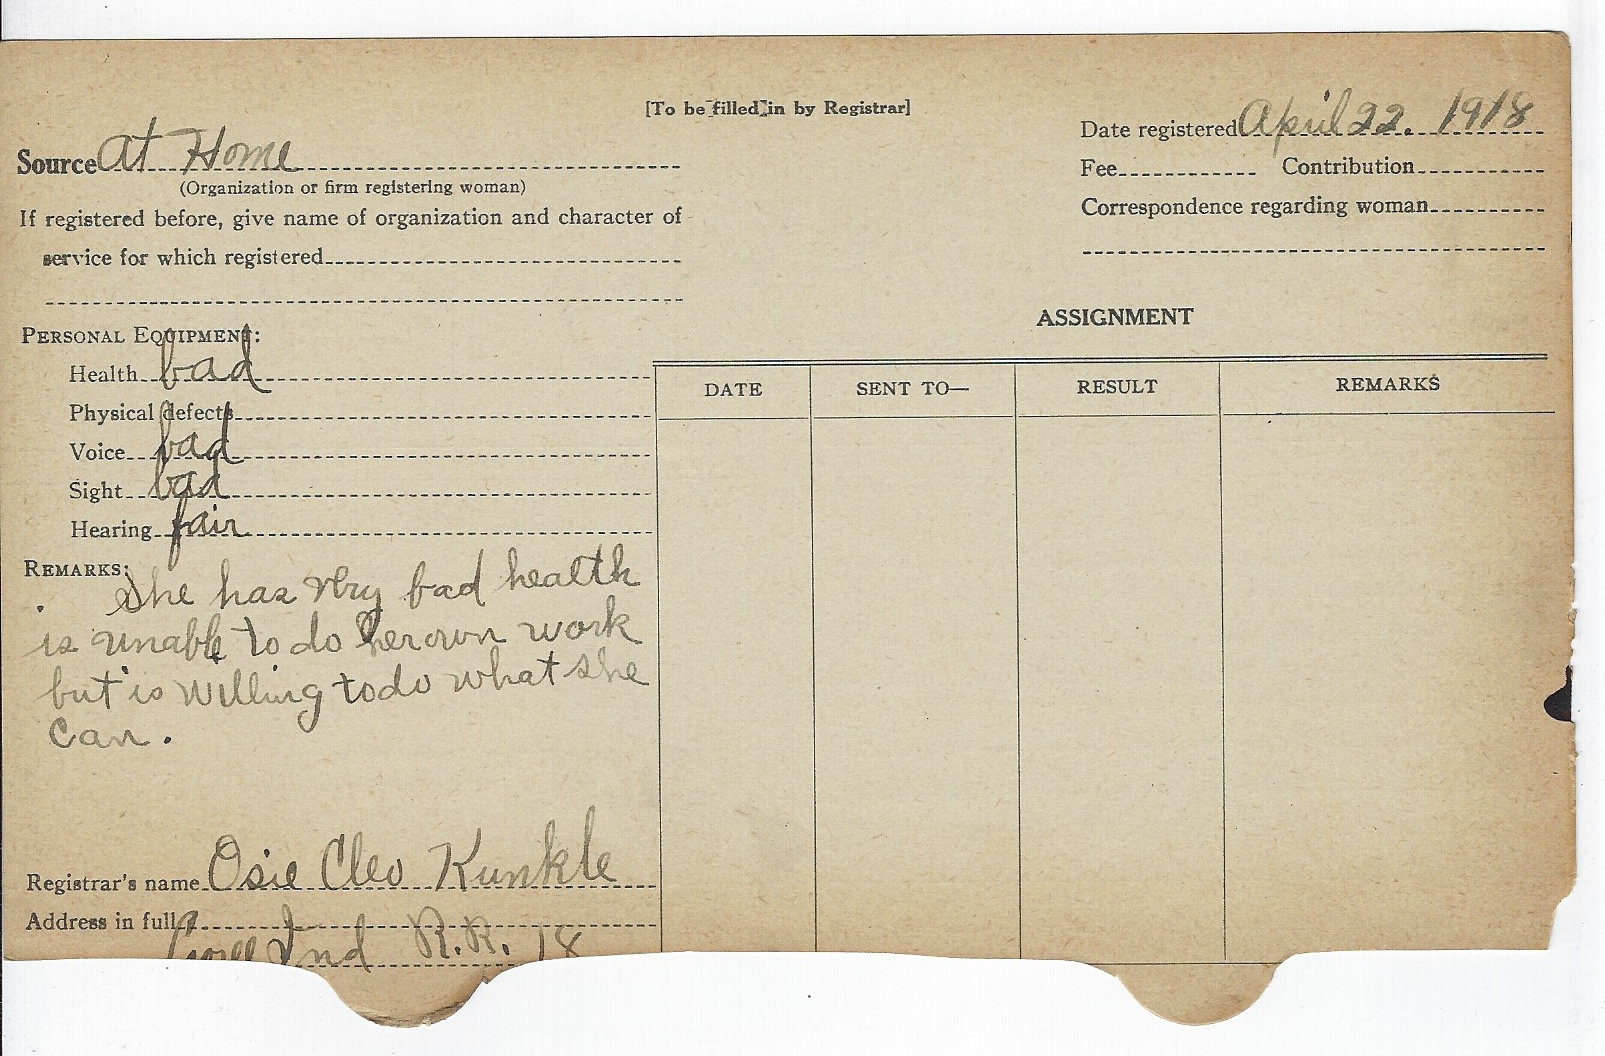 [To be filled in by Registrar]
Date registered April 22. 1918
Source At Home
(Organization or firm registering woman)
Fee Contribution
If registered before, give name of organization and character of
Correspondence regarding woman
service for which registered
ASSIGNMENT
PERSONAL EQUIPMENT:
Health bad
Physical defects
Voice bad
Sight bad
Hearing fair
DATE SENT TO— RESULT REMARKS
REMARKS:
She has very bad health
is unable to do her own work
but is willing to do what she
can.
Registrar's name Osie Cleo Kunkle
Address in full
Ind R.R. 18